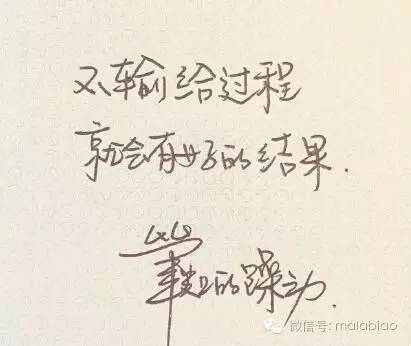 不输给过程
就会有好的结果.
的躁动.
微信号: malabiao